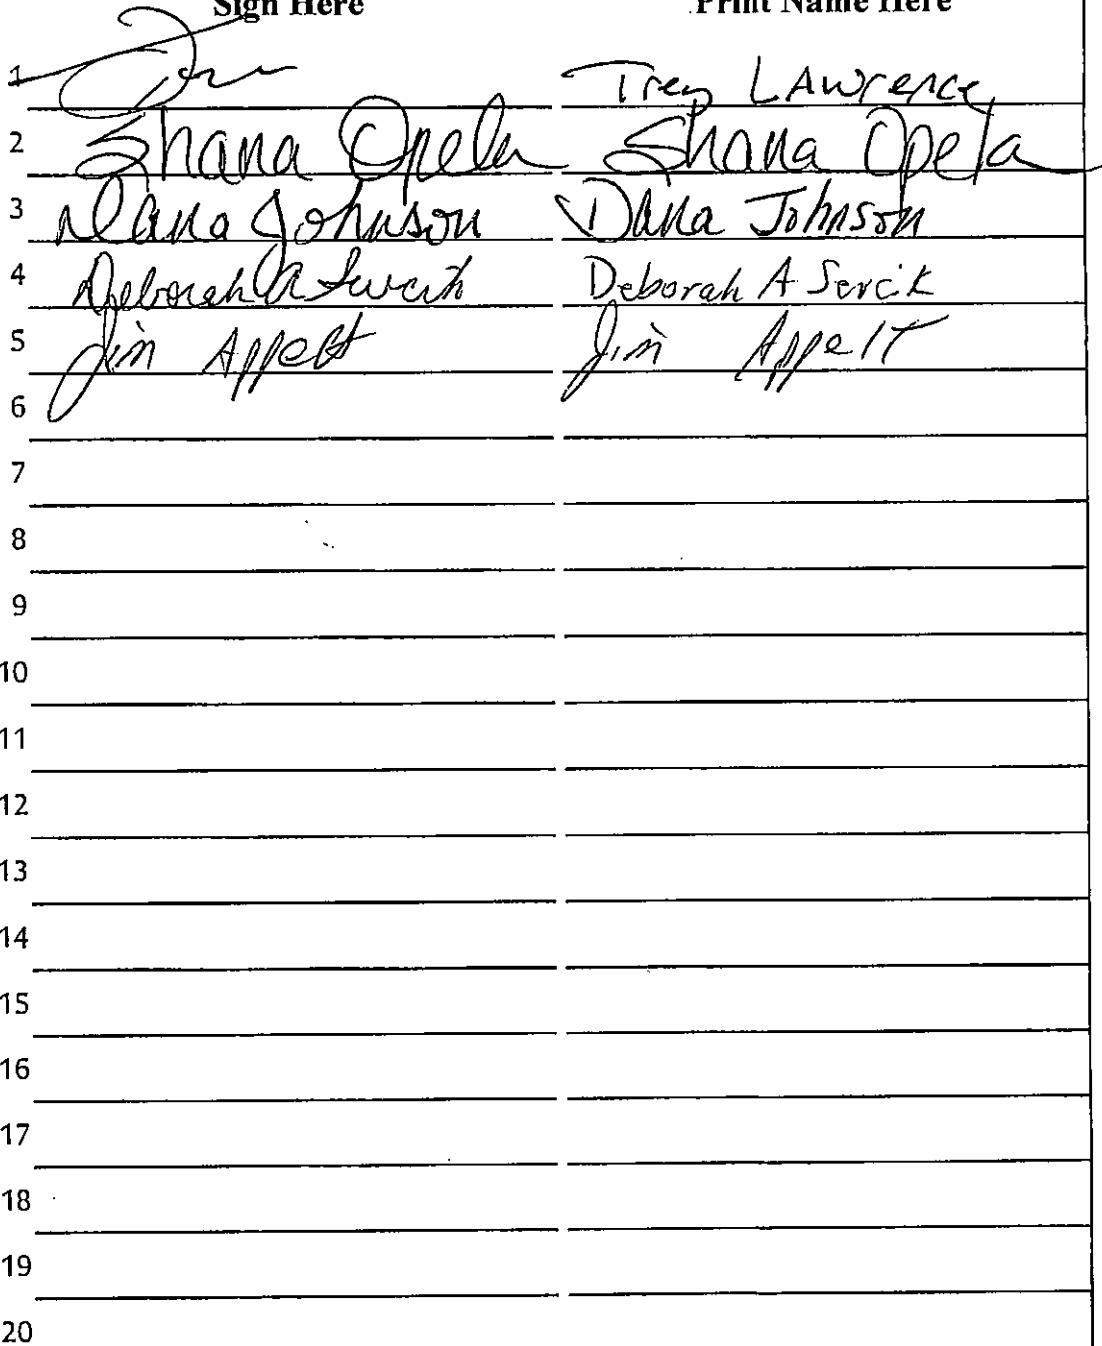 Sign Here Print Name Here
1 Trey LAwrence
2 Shana Opela Shana Opela
3 Dana Johnson Dana Johnson
4 Deborah A Sevcik Deborah A Sevcik
5 Jim Appelt Jim Appelt
6
7
8
9
10
11
12
13
14
15
16
17
18
19
20